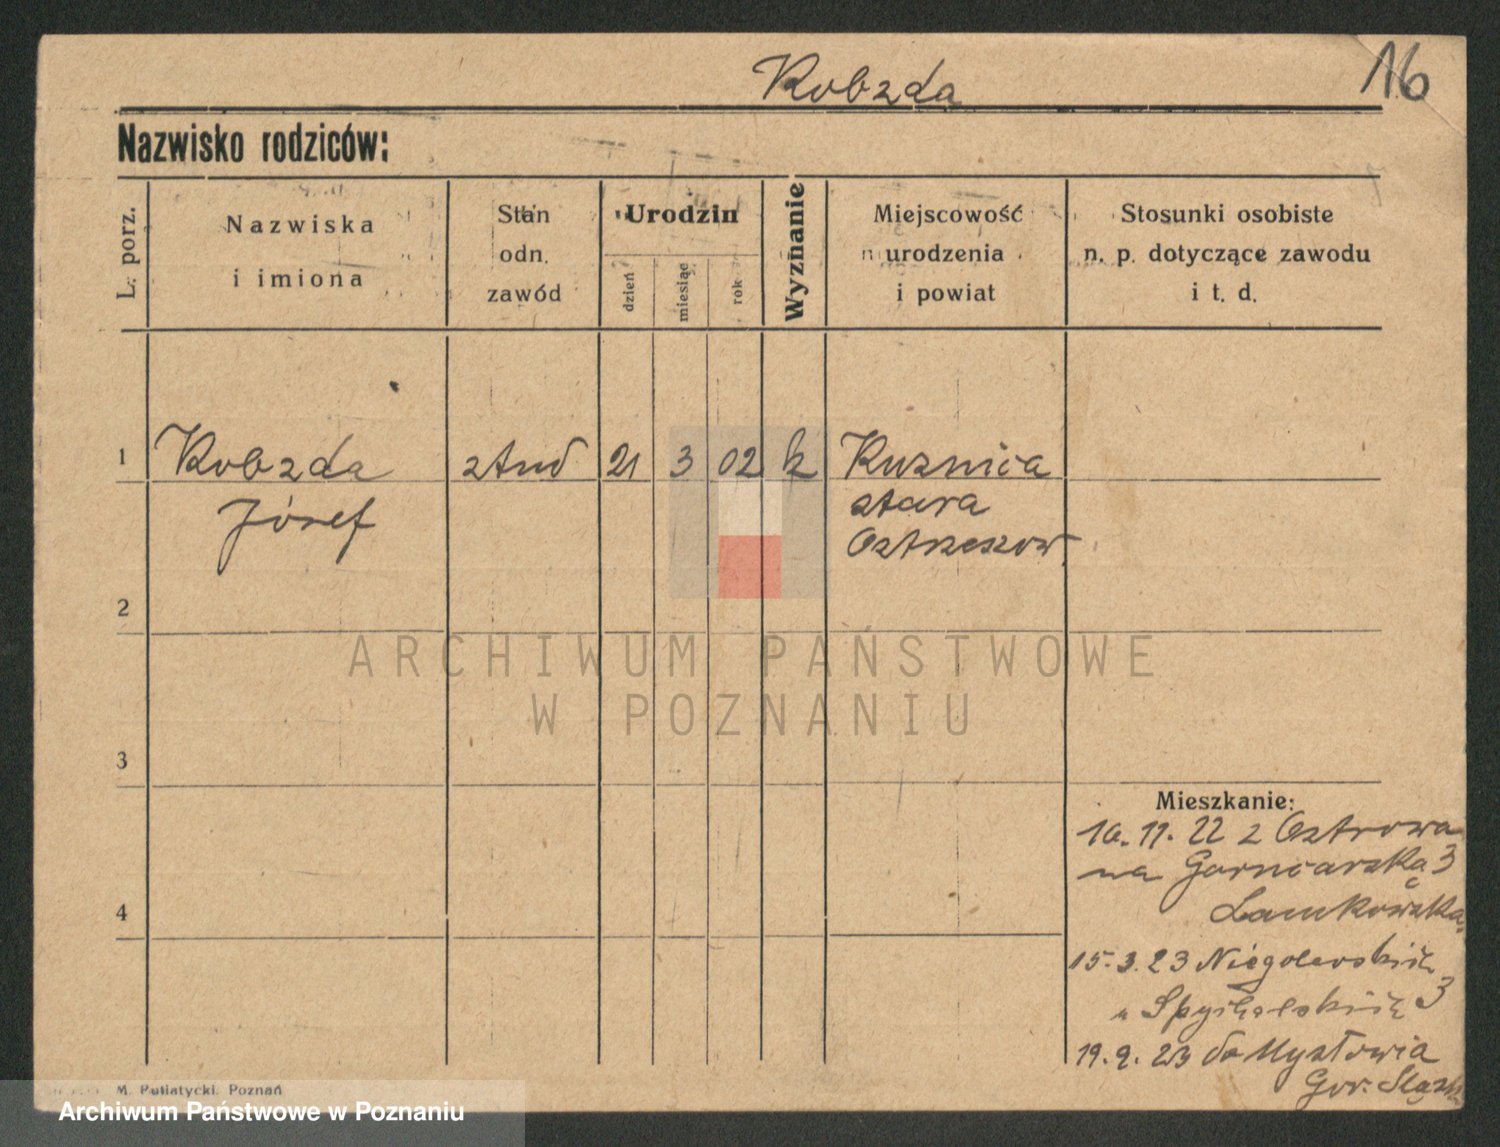 Kobzda
16
Nazwisko rodziców:
L. porz.
Nazwiska
i imiona
Stan
odn.
zawód
Urodzin
dzień
miesiąc
rok
Wyznanie
Miejscowość
urodzenia
i powiat
Stosunki osobiste
n. p. dotyczące zawodu
i t. d.
1 Kobzda stud 21 3 02 k Kuznica
Józef stara
Ostrzeszow
2
ARCHIWUM PAŃSTWOWE
W POZNANIU
3
Mieszkanie:
16. 11. 22 z Ostrowa
na Garncarską 3
4
Lamkowska
15. 3. 23 Niegolewskich 3
u Spychalskich
19. 9. 23 do Mysłowic
Gór. Śląsk
M. Putiatycki, Poznań
Archiwum Państwowe w Poznaniu